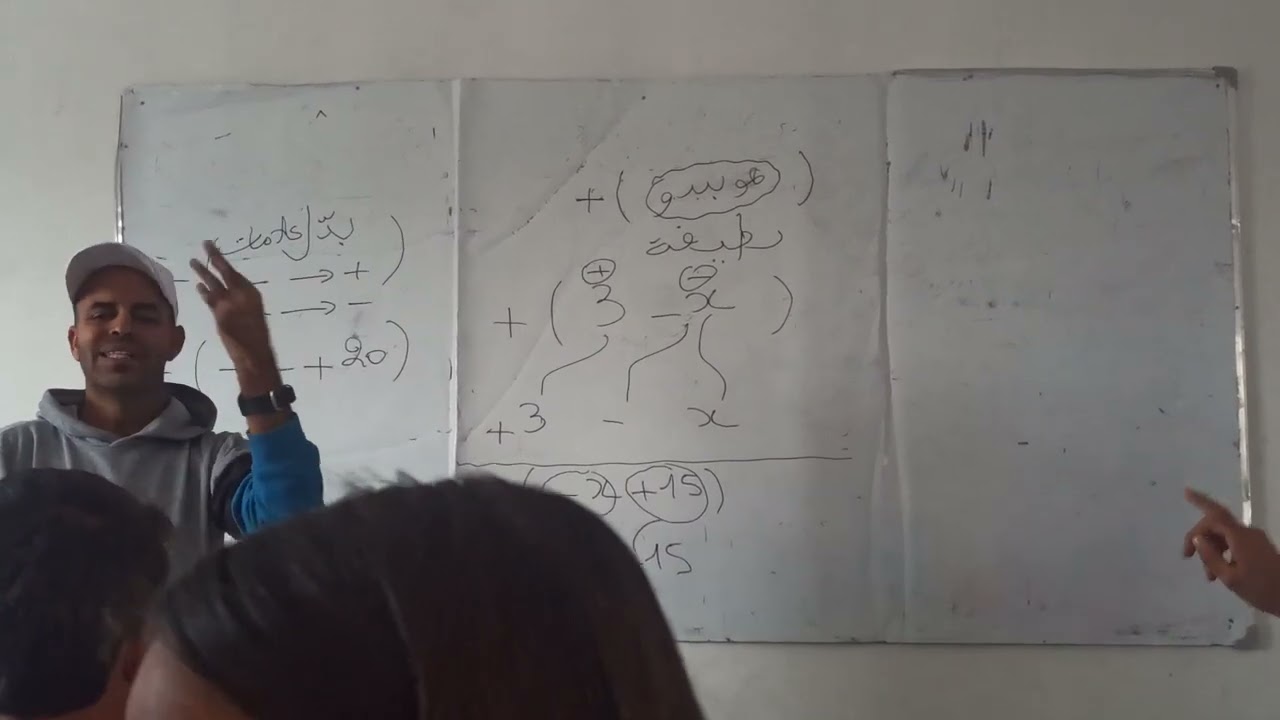 بدّل علامات )
- → +
→ -
( - + 20 )
+ ( هو بيدو )
نظيفة
+ -
+ ( 3 - x )
+ 3 - x
( - x + 15 )
15